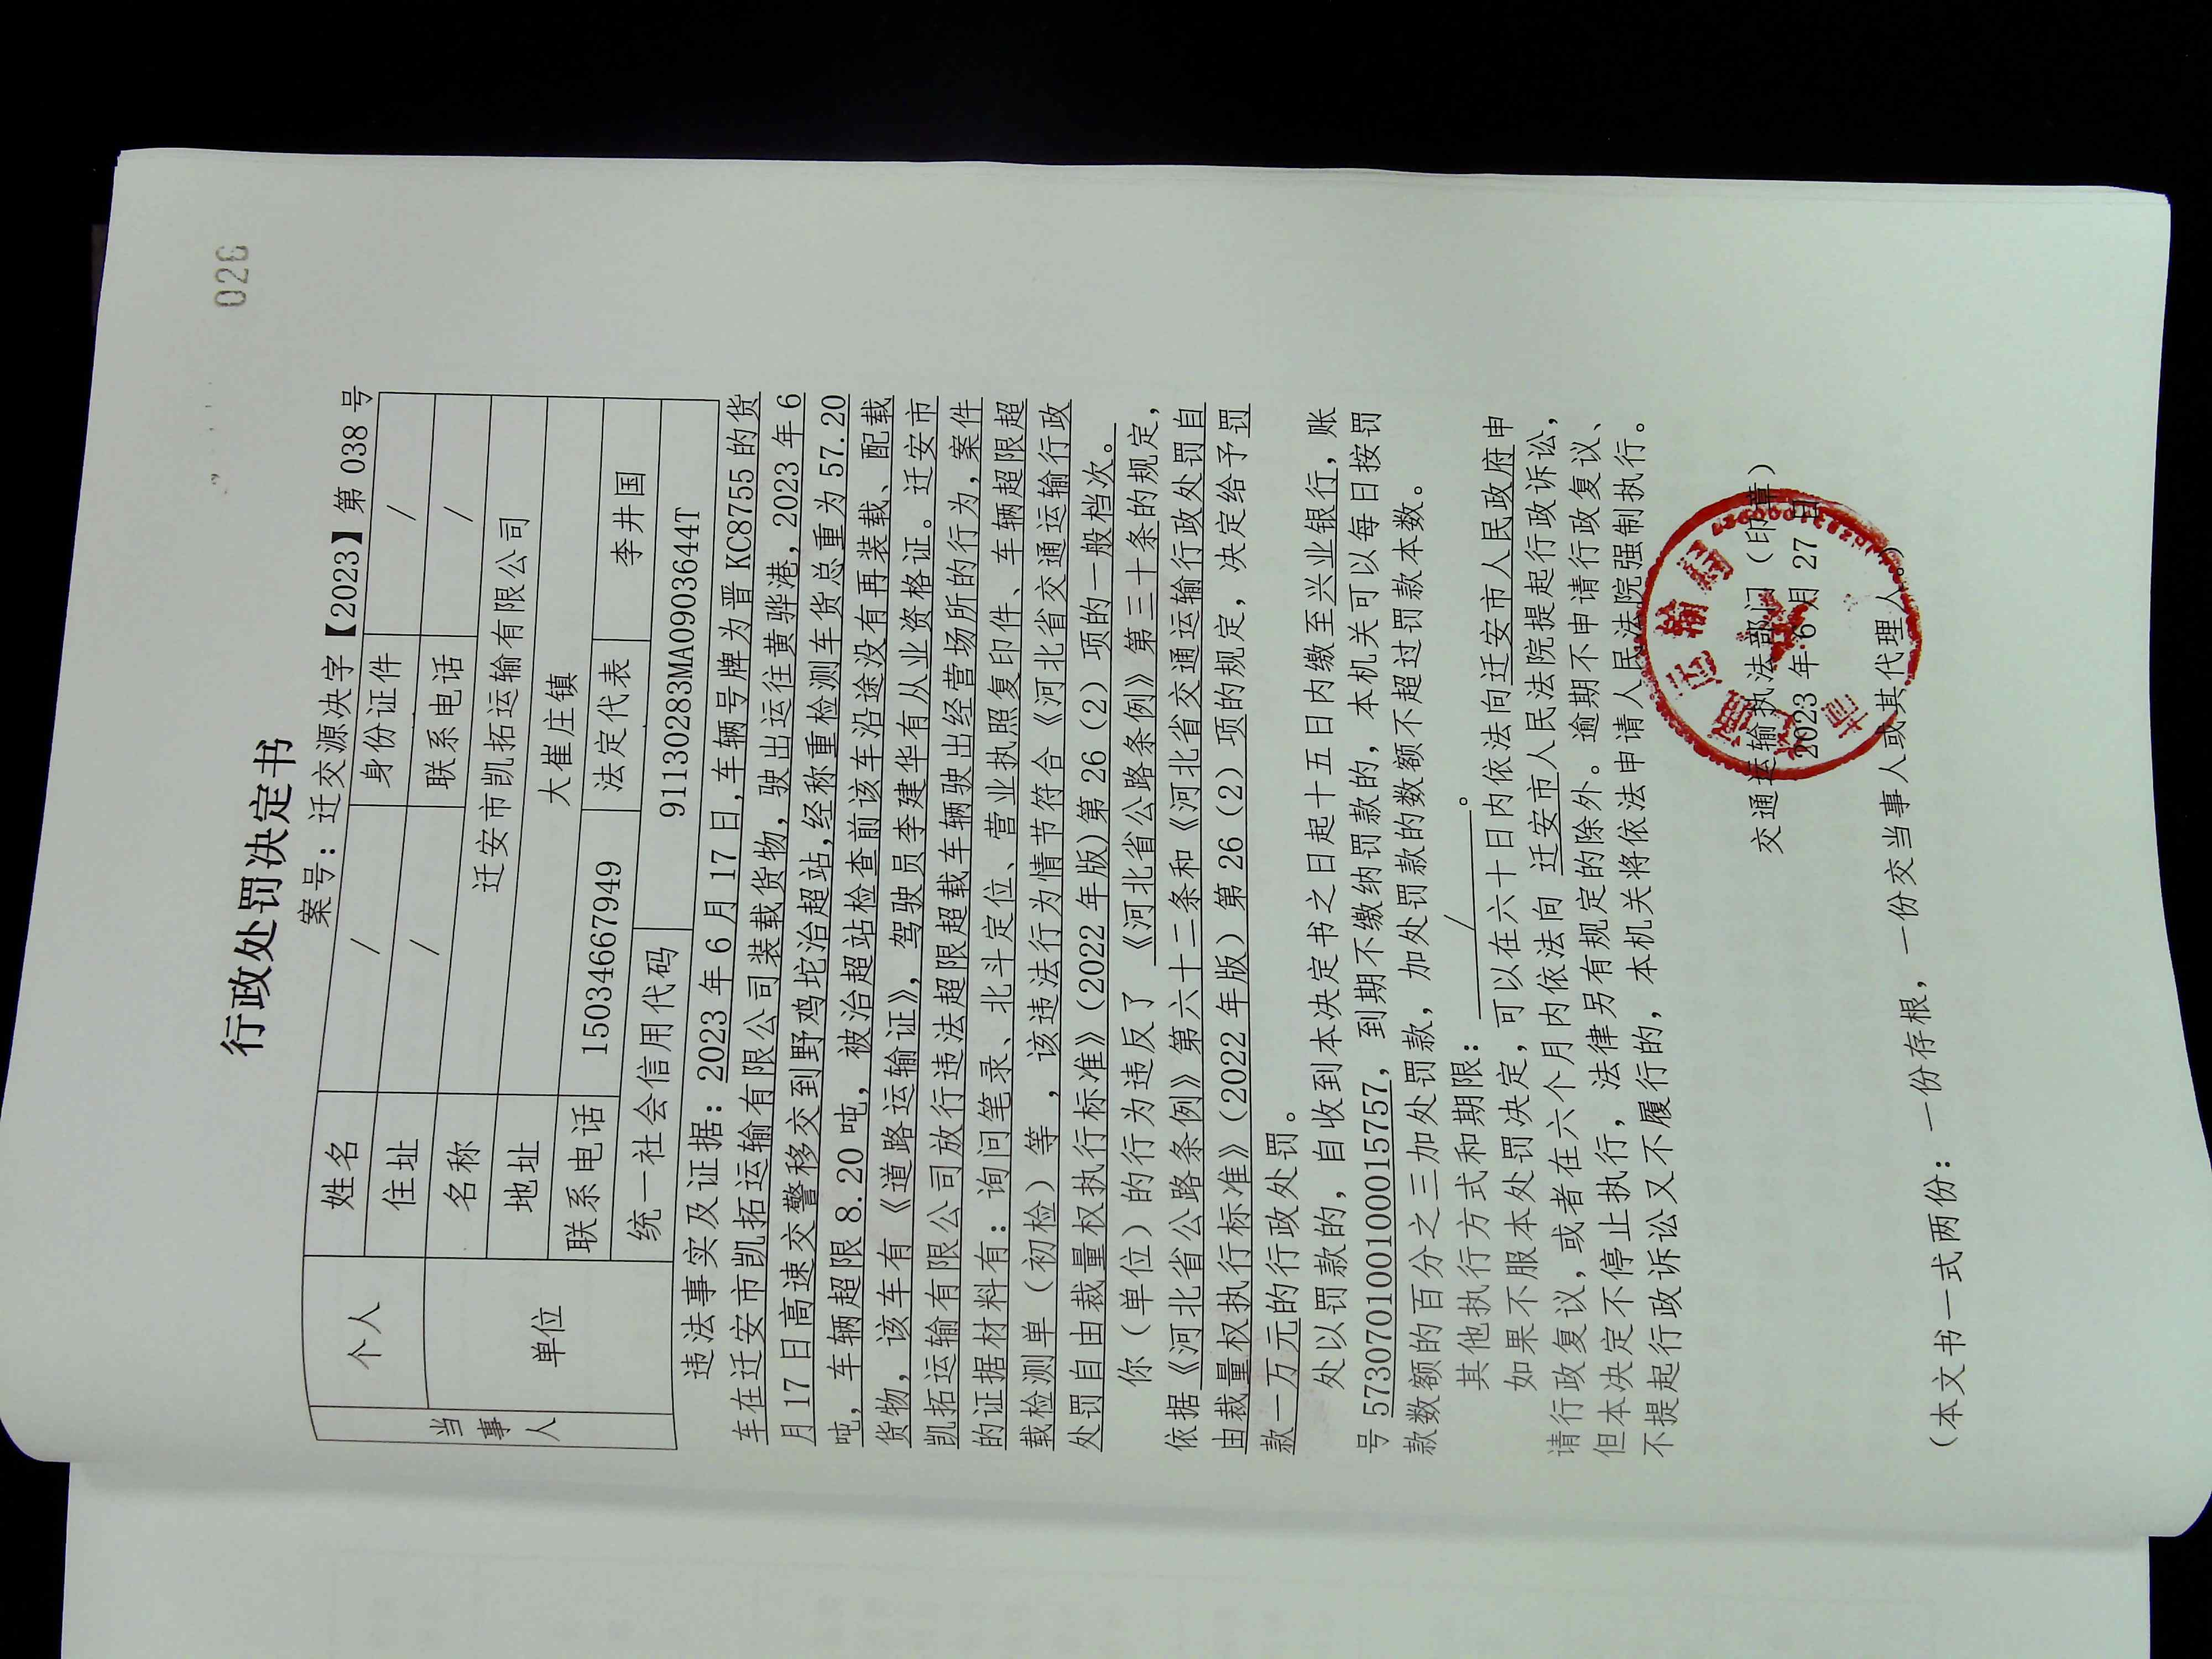 026
行政处罚决定书
案号：迁交源决字【2023】第 038 号
当事人
个人
姓名 / 身份证件 /
住址 / 联系电话 /
单位
名称 迁安市凯拓运输有限公司
地址 大崔庄镇
联系电话 15034667949 法定代表 李井国
统一社会信用代码 91130283MA0903644T
违法事实及证据：2023 年 6 月 17 日，车辆号牌为晋 KC8755 的货
车在迁安市凯拓运输有限公司装载货物，驶出运往黄骅港，2023 年 6
月 17 日高速交警移交到野鸡坨治超站，经称重检测车货总重为 57.20
吨，车辆超限 8.20 吨，被治超站检查前该车沿途没有再装载、配载
货物，该车有《道路运输证》，驾驶员李建华有从业资格证。迁安市
凯拓运输有限公司放行违法超限超载车辆驶出经营场所的行为，案件
的证据材料有：询问笔录、北斗定位、营业执照复印件、车辆超限超
载检测单（初检）等，该违法行为情节符合《河北省交通运输行政
处罚自由裁量权执行标准》（2022 年版）第 26（2）项的一般档次。
你（单位）的行为违反了 《河北省公路条例》第三十条的规定，
依据《河北省公路条例》第六十二条和《河北省交通运输行政处罚自
由裁量权执行标准》（2022 年版）第 26（2）项的规定，决定给予罚
款一万元的行政处罚。
处以罚款的，自收到本决定书之日起十五日内缴至兴业银行，账
号 573070100100015757，到期不缴纳罚款的，本机关可以每日按罚
款数额的百分之三加处罚款，加处罚款的数额不超过罚款本数。
其他执行方式和期限： / 。
如果不服本处罚决定，可以在六十日内依法向迁安市人民政府申
请行政复议，或者在六个月内依法向 迁安市人民法院提起行政诉讼，
但本决定不停止执行，法律另有规定的除外。逾期不申请行政复议、
不提起行政诉讼又不履行的，本机关将依法申请人民法院强制执行。
交通运输执法部门（印章）
2023 年 6 月 27 日
（本文书一式两份：一份存根，一份交当事人或其代理人。）